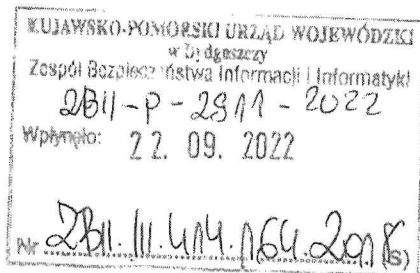 KUJAWSKO-POMORSKI URZĄD WOJEWÓDZKI
w Bydgoszczy
Zespół Bezpieczeństwa Informacji i Informatyki
ZBII-P-2911-2022
Wpłynęło: 22. 09. 2022
Nr ZBII.III.414.164.2018 (S)